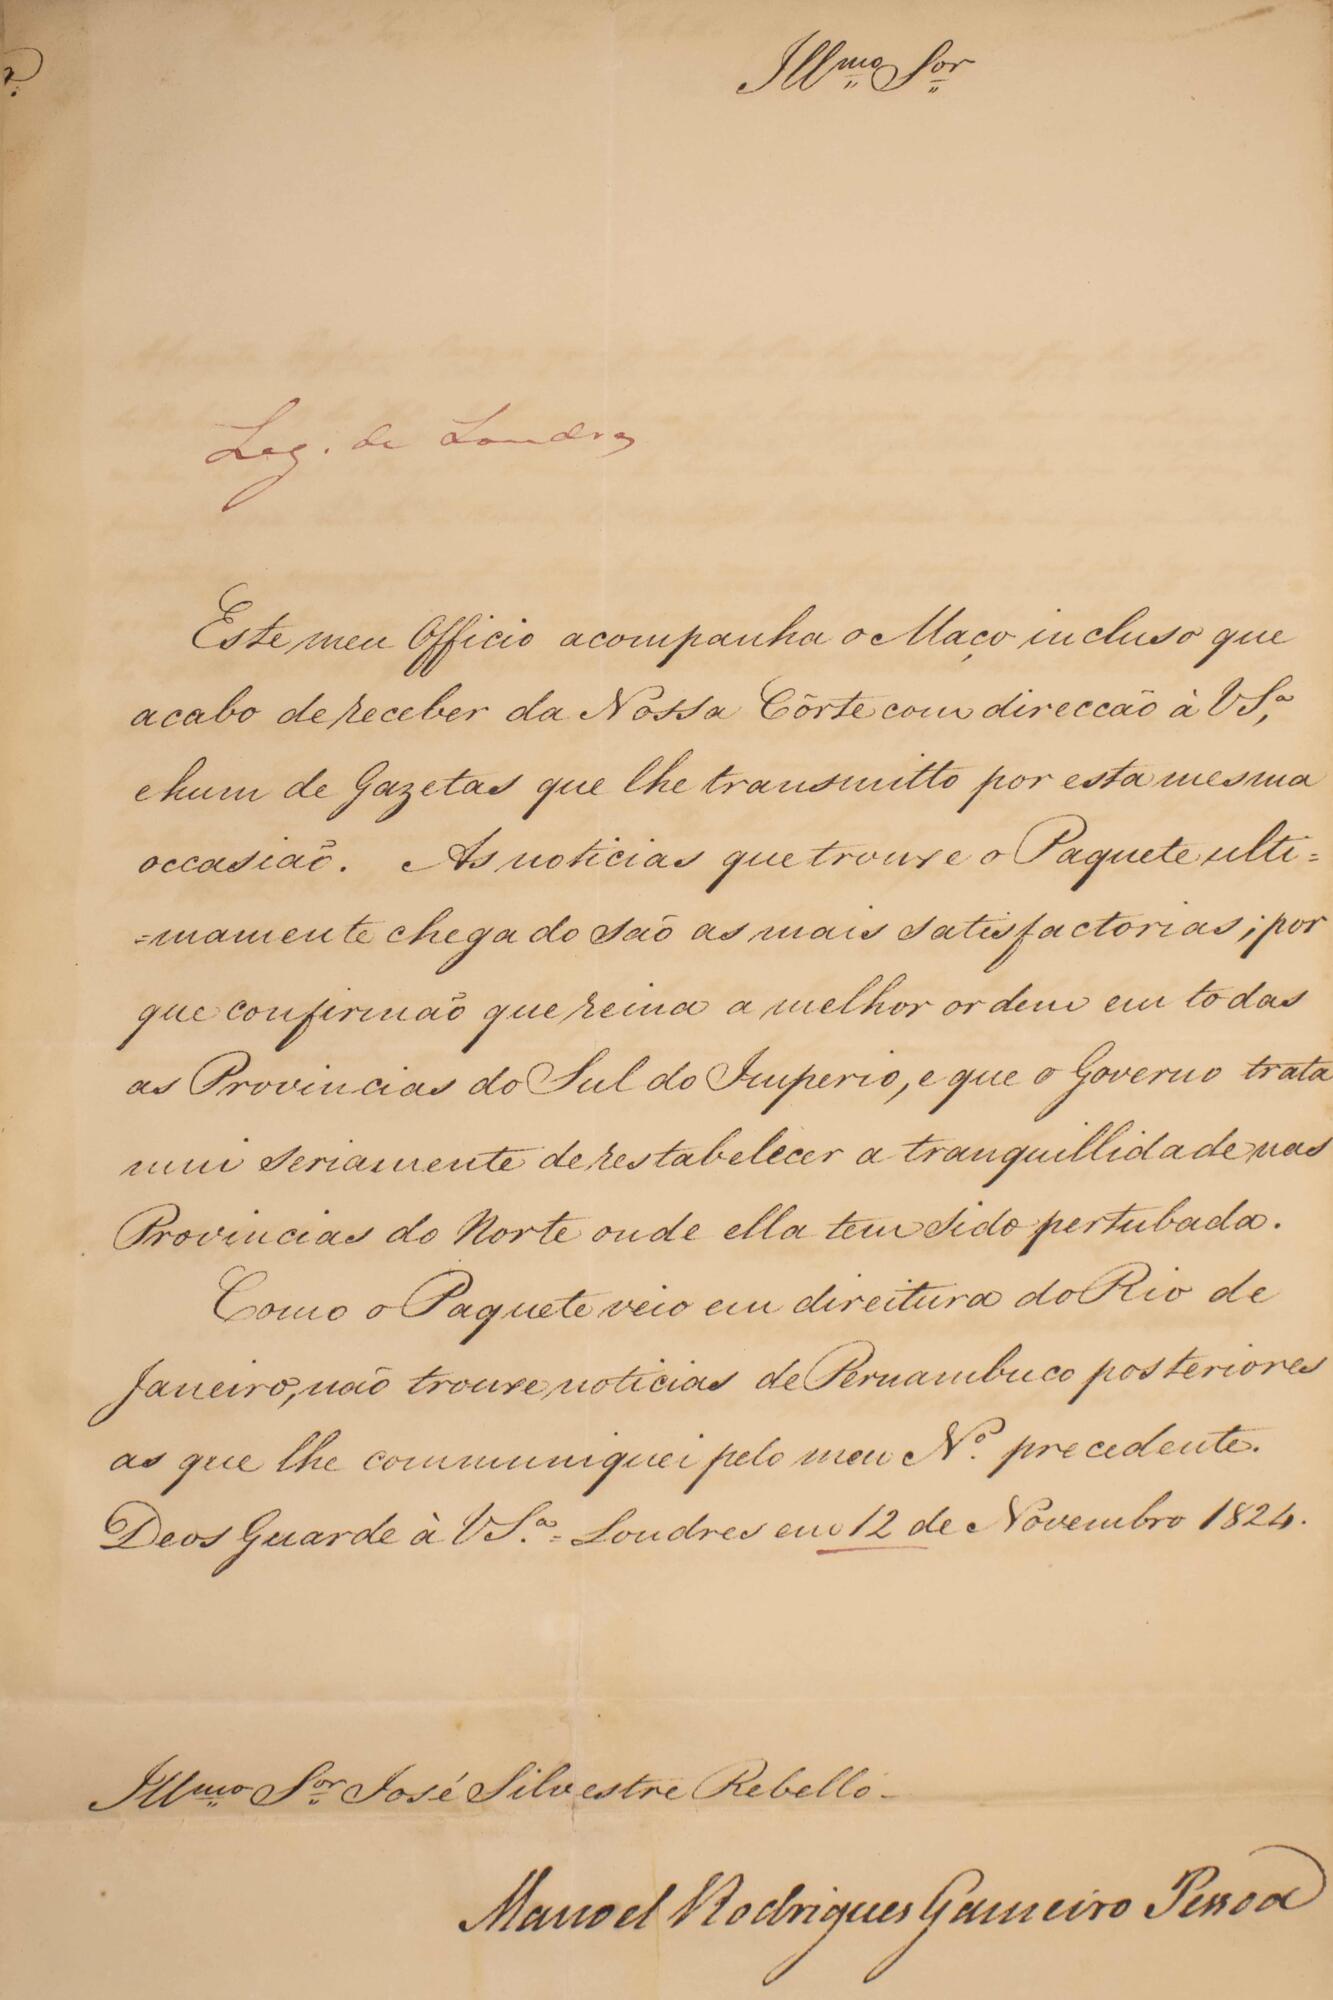 Illmo Sor
Leg. de Londres
Este meu Officio acompanha o Maço incluso que
acabo de receber da Nossa Côrte com direccão à VSa,
e hum de Gazetas que lhe transmitto por esta mesma
occasião. As noticias que trouxe o Paquete ulti=
=mamente chegado são as mais satisfactorias; por
que confirmão que reina a melhor ordem em todas
as Provincias do Sul do Imperio, e que o Governo trata
mui seriamente de restabelecer a tranquillidade nas
Provincias do Norte onde ella tem sido pertubada.
Como o Paquete veio em direitura do Rio de
Janeiro, não trouxe noticias de Pernambuco posteriores
as que lhe communiquei pelo meu No. precedente.
Deos Guarde à VSa. = Londres em 12 de Novembro 1824.
Illmo Sor José Silvestre Rebello -
Manoel Rodrigues Gameiro Pessoa